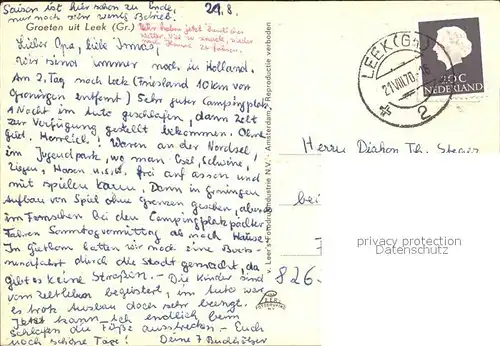 Saison ist hier schon zu Ende,
nur noch sehr wenig Betrieb.
21.8.
Groeten uit Leek (Gr.)
Wir haben jetzt deutsches
zu
Lieber Opa, liebe Irmas!
Wir sind immer noch in Holland.
Am 2. Tag nach Leek (Friesland 10 km von
Groningen entfernt) Sehr guter Campingplatz,
1 Nacht im Auto geschlafen, dann Zelt
zur Verfügung gestellt bekommen. Ohne
Geld. Herrlich! Waren an der Nordsee,
im Jugendpark, wo man Esel, Schweine,
Ziegen, Hasen u.s.w. frei auf assen und
mit spielen kann. Dann in Groningen
Aufbau von Spiel ohne Grenzen gesehen, abends
im Fernsehen bei den Campingplatzpächter
Fahren Sonntagvormittag ab nach Hause.
In Giethorn hatten wir noch eine Boots-
rundfahrt durch die Stadt gemacht, da
gibt es keine Straßen. - Die Kinder sind
vom Zeltleben begeistert, im Auto war
es trotz Ausbau doch sehr beengt.
Jetzt kann ich endlich beim
Schlafen die Füße ausstrecken. - Euch
noch schöne Tage! Deine 7 Buchhölzer
v. Leer's Fotodrukindustrie N.V. - Amsterdam - Reproductie verboden
LEEK (GR.)
21.VIII.70.-16
2
20 C
NEDERLAND
Herrn Diakon Th. Steger
bei
826-
privacy protection
www.oldthing.de